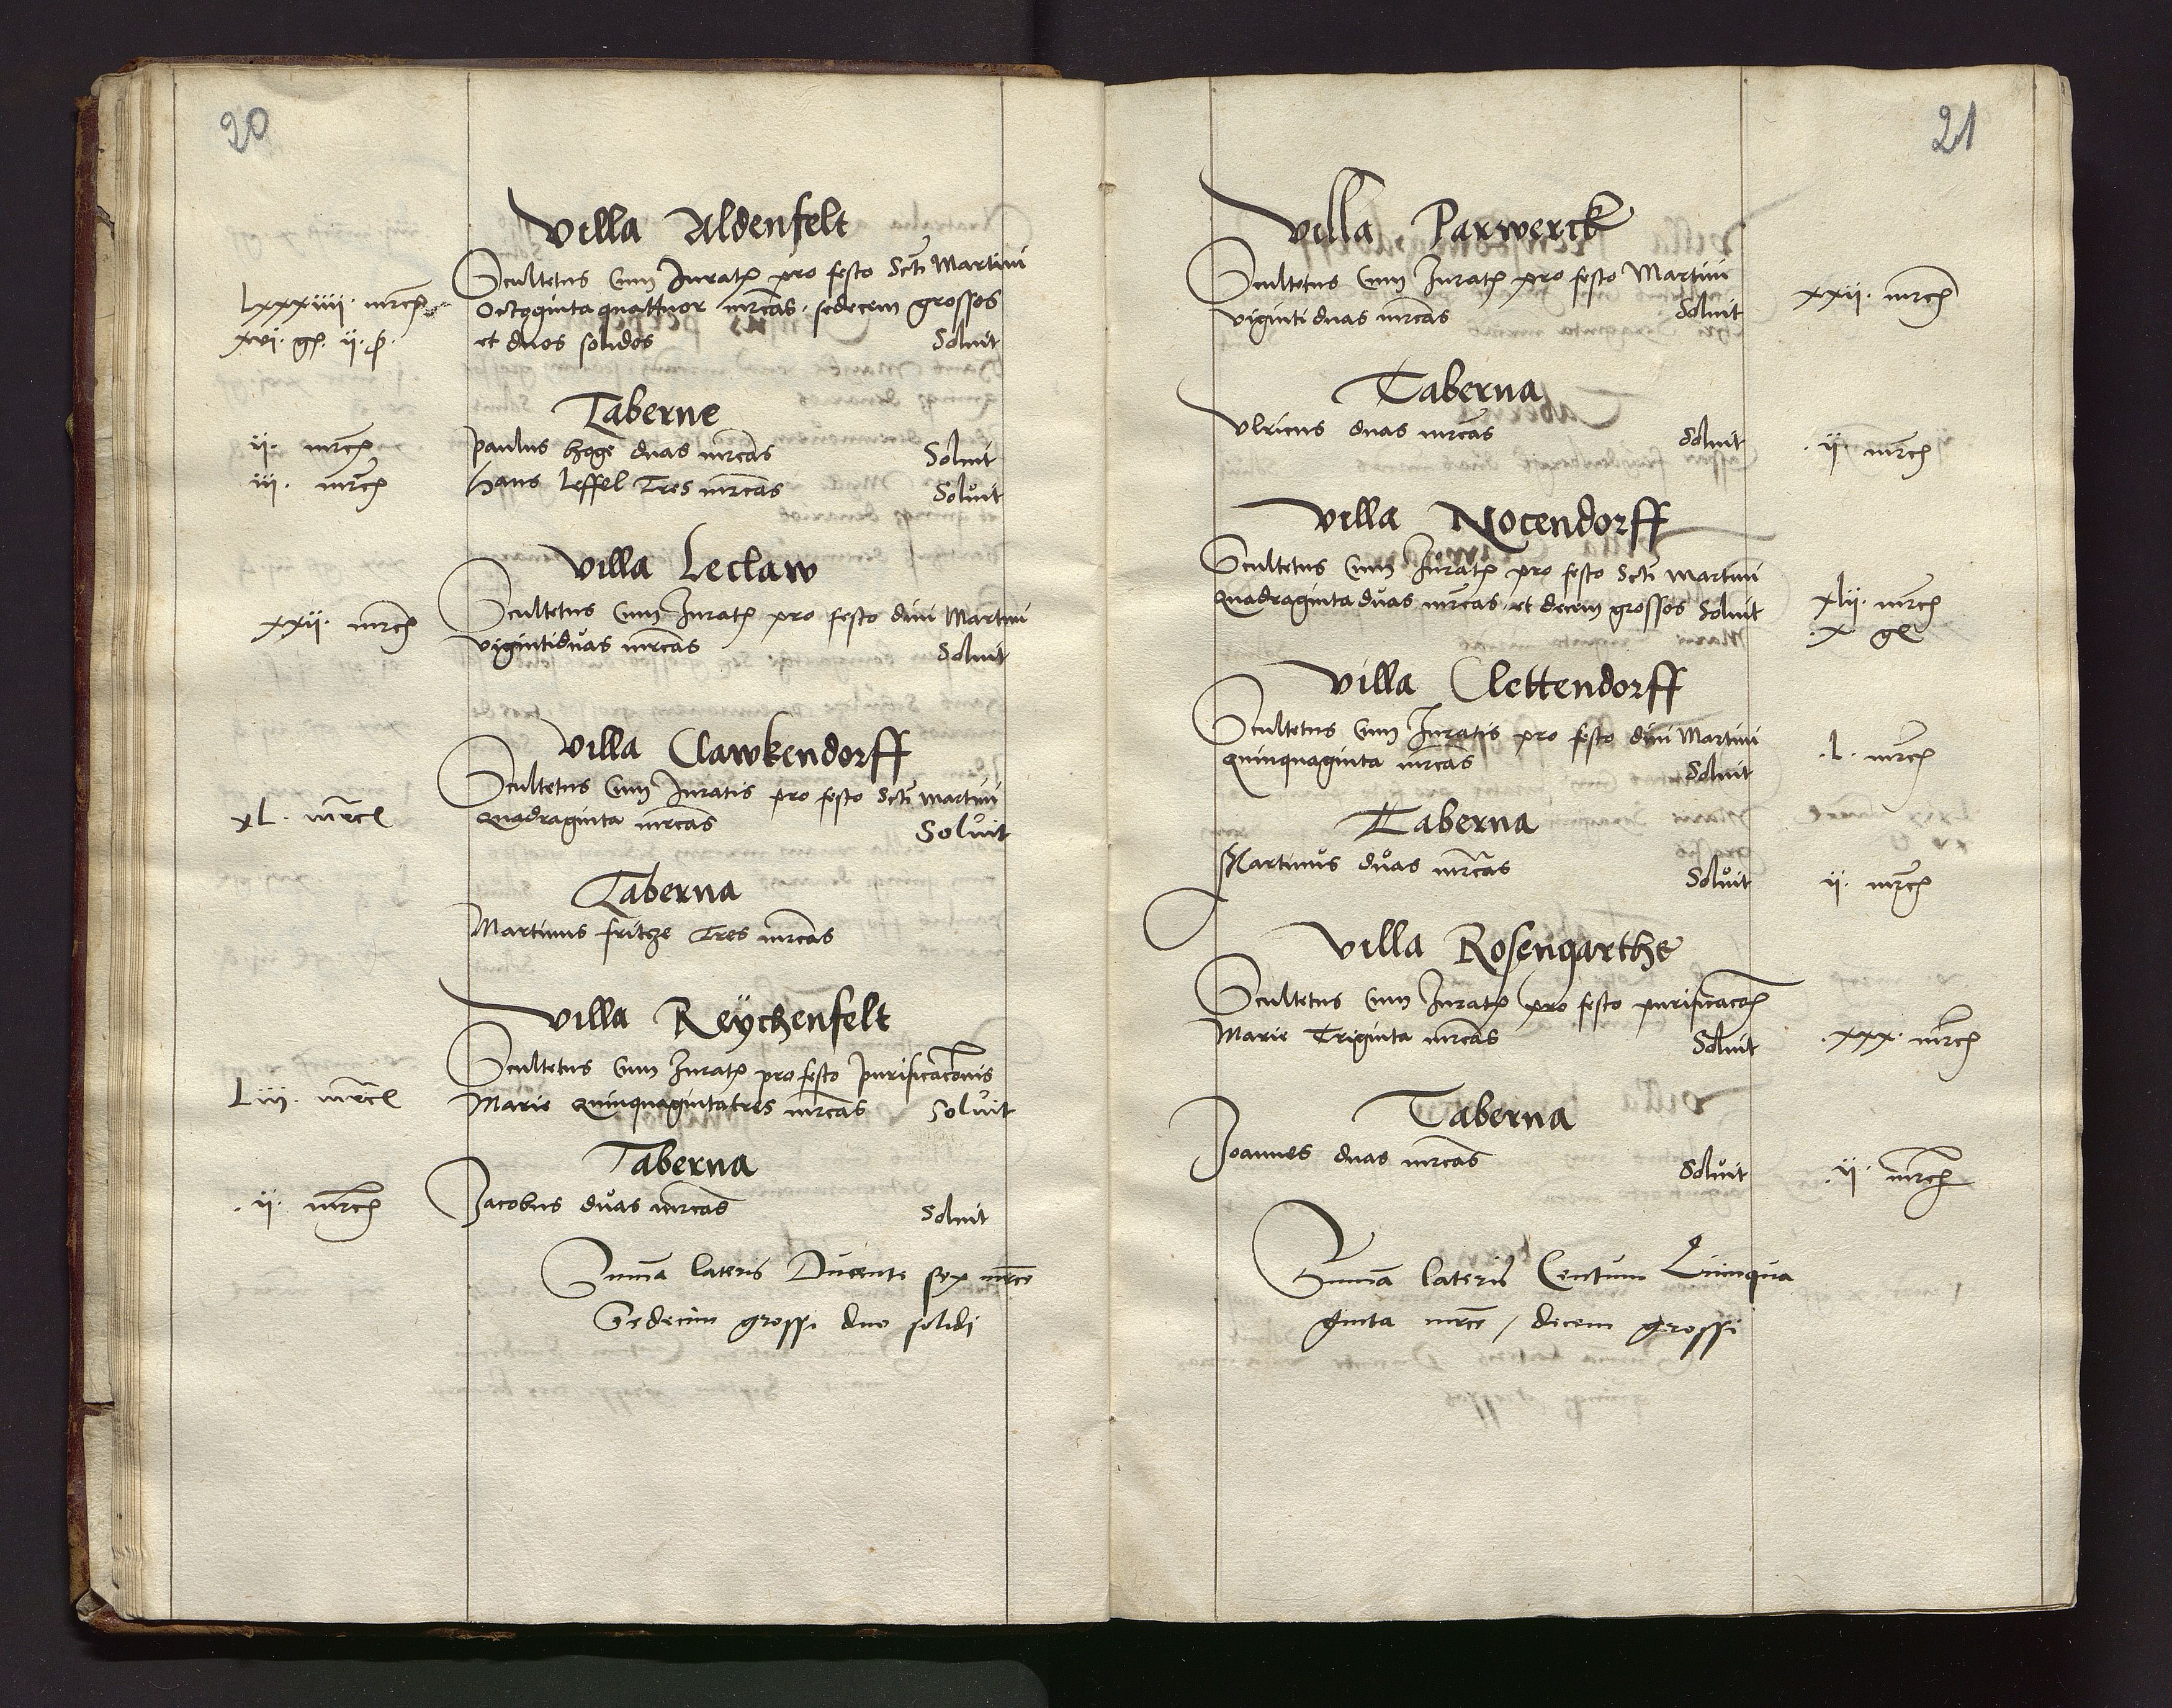 20
Villa Aldenfelt
Scultetus Cum Jurat⁊ pro festo Scti Martini
Lxxxiiii. mrc⁊
octoginta quattuor mrcas. sedecim grossos
xvi. g⁊. ii. β.
et duos solidos Soluit
Taberne
ii. mrc⁊ Paulus hoge duas mrcas Soluit
iii. mrc⁊ Hans Leffel Tres mrcas Soluit
Villa Leclaw
Scultetus Cum Jurat⁊ pro festo diui Martini
xxii. mrc⁊ vigintiduas mrcas Soluit
Villa Clawkendorff
Scultetus Cum Juratis pro festo Scti Martini
xL. mrc⁊ Quadraginta mrcas Soluit
Taberna
Martinus fritze Tres mrcas
Villa Reÿchenfelt
Scultetus Cum Jurat⁊ pro festo purificaconis
Liii. mrc⁊ Marie Quinquagintatres mrcas Soluit
Taberna
.ii. mrc⁊ Jacobus duas mrcas Soluit
Suma lateris Ducente sex mrce
Sedecim grossi duo solidi
21
Villa Parwerck
Scultetus Cum Jurat⁊ pro festo Martini
viginti duas mrcas Soluit xxii. mrc⁊
Taberna
Vlricus duas mrcas Soluit .ii. mrc⁊
Villa Nocendorff
Scultetus Cum Jurat⁊ pro festo Scti Martini
Quadraginta duas mrcas. et decem grossos Soluit xlii. mrc⁊
.x. g⁊
Villa Clettendorff
Scultetus Cum Juratis pro festo diui Martini
quinquaginta mrcas Soluit .l. mrc⁊
Taberna
Martinus duas mrcas Soluit ii. mrc⁊
Villa Rosengarthe
Scultetus Cum Jurat⁊ pro festo purificacon⁊
Marie Triginta mrcas Soluit .xxx. mrc⁊
Taberna
Joannes duas mrcas Soluit .ii. mrc⁊
Suma lateris Centum Quinqua
ginta mrce / decem grossi